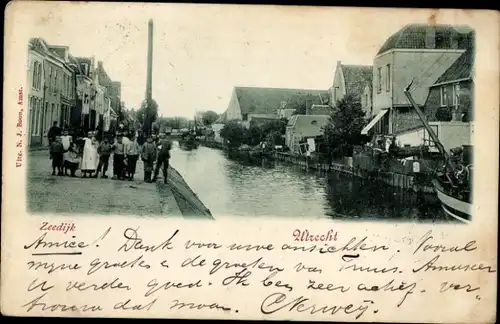 Uitg. N. J. Boon, Amst.
Zeedijk
Utrecht
Amice! Dank voor uwe ansichten. Vooral
mijne groeten & de groeten van Truus. Amuseer
u verder goed. Ik ben zeer actief.
trouw dat maar. C.